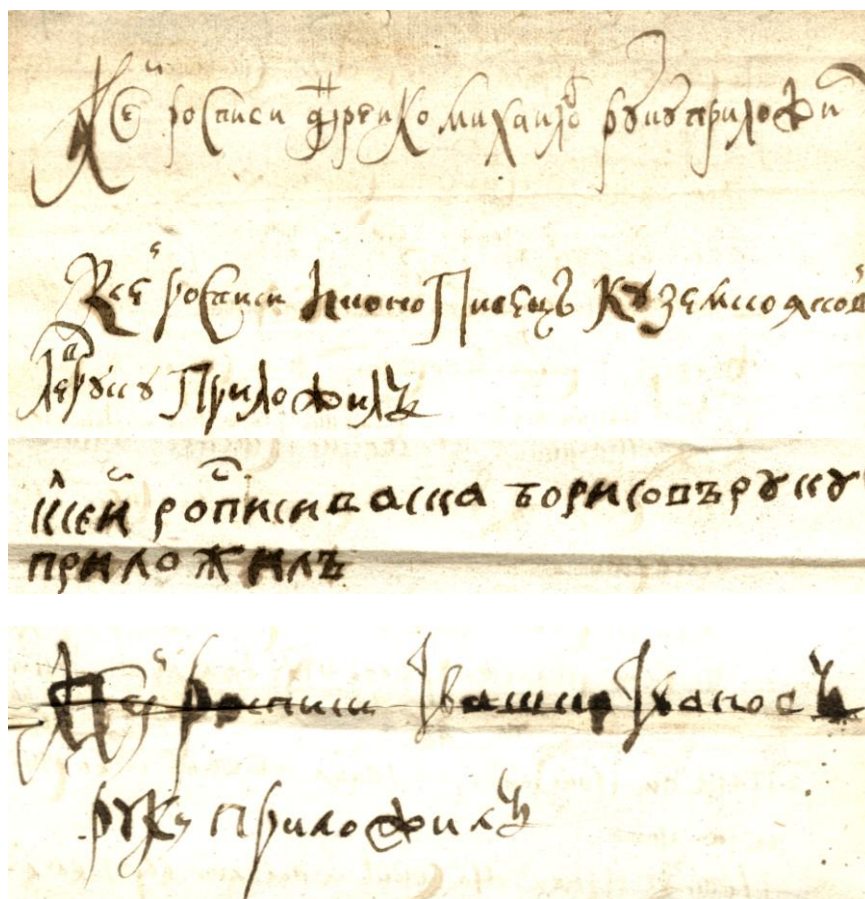 К сей росписи Фтенко Михаилов руку приложил
К сей росписи писец Куземко
руку приложилъ
К сей росписи васка борисовъ руку
приложилъ
К сей росписи Ивашко Иванов
руку приложилъ